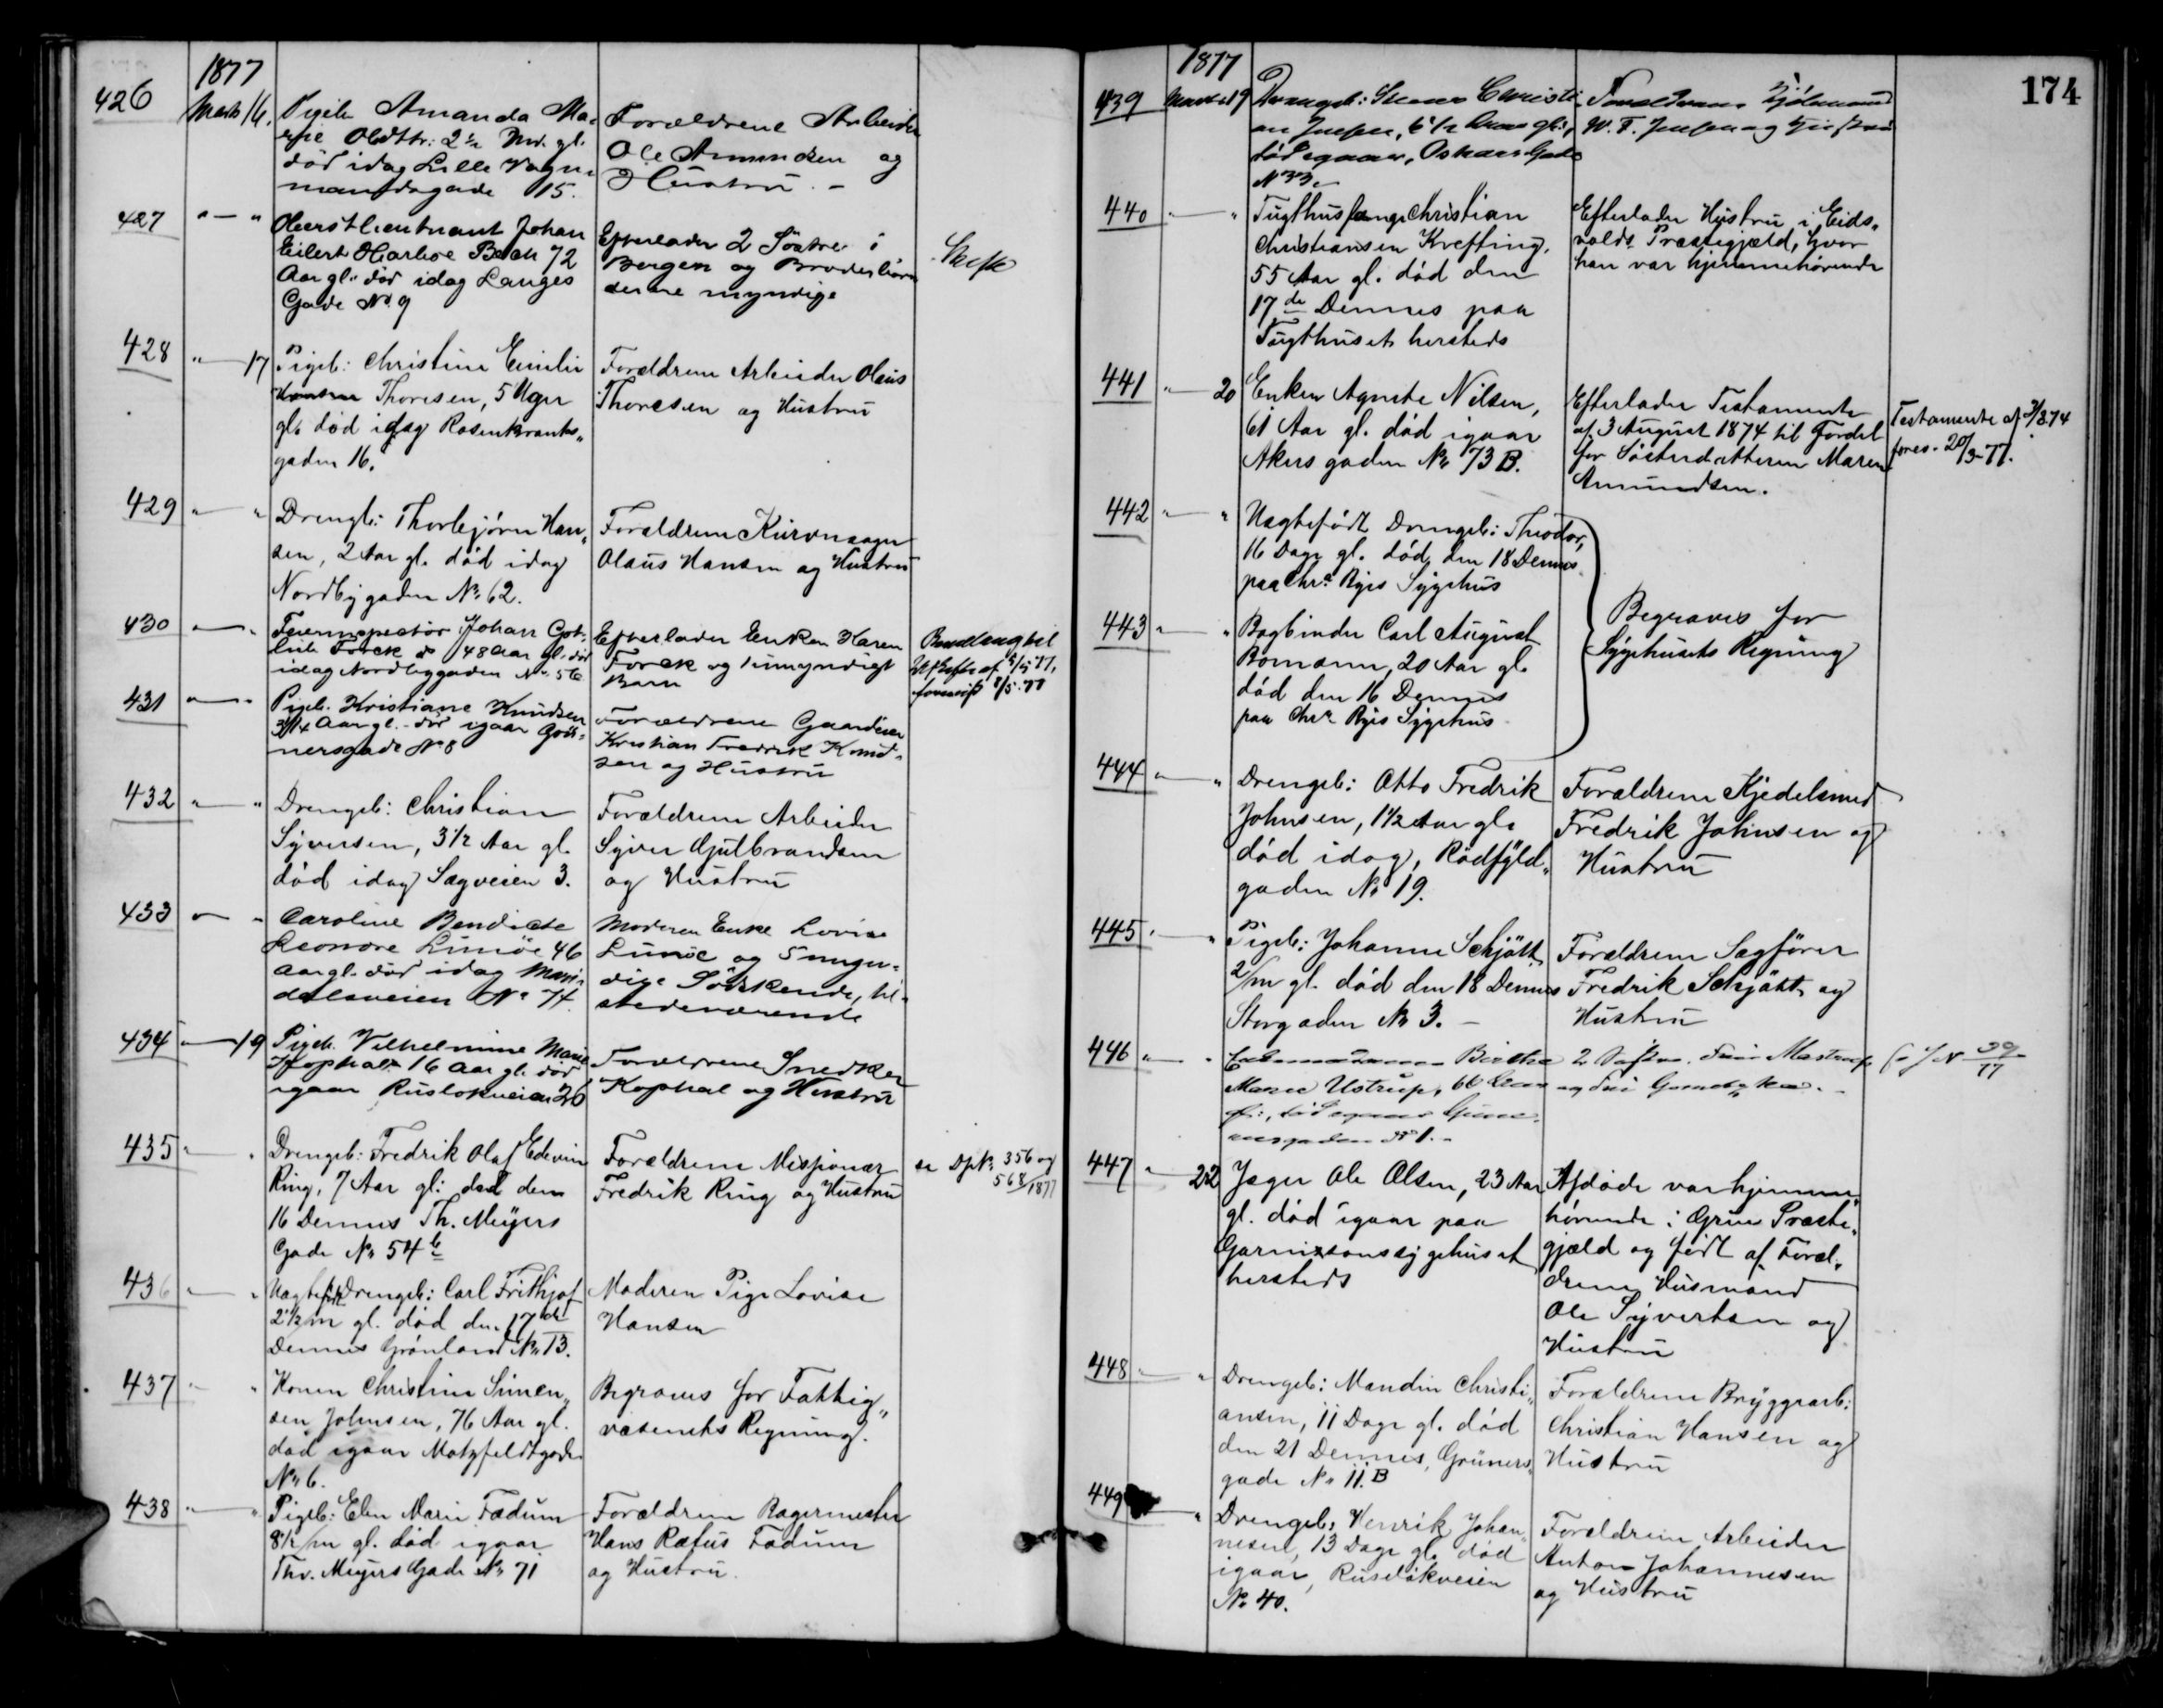 1877
426 Marts 16. Pigeb Amanda Ma-
rie Oldttr: 2½ Md. gl.
död idag Lille Vogn-
mandsgade 15.
Forældrene Arbeider
Ole Amundsen og
Hustru. -
427 " — " Oberstlieutnant Johan
Eilert Harboe Bech 72
Aar gl. död idag Langes
Gade No 9
Efterlader 2 Söstre i
Bergen og Broderbörn
alle myndige
Skifte
428 " — 17 Pigeb: Christine Emilie
Thoresen, 5 Uger
gl. död idag Rosenkrants„
gaden 16.
Forældrene Arbeider Olaus
Thoresen og Hustru
429 " — " Drengb: Thorbjörn Han„
sen, 2 Aar gl. död idag
Nordbygaden No 62.
Forældrene Kurvmager
Olaus Hansen og Hustru
430 " — " Feierinspector Johan Got-
lieb Forck 48 Aar gl. död
idag Nordbygaden No 56
Efterlader Enken Karen
Forck og 1 umyndigt
Barn
Bevilling til
Uskifte af 2/5 77,
forevist 8/5 77
431 " — " Pigeb. Kristiane Knudsen
3¼ Aar gl. död igaar Grü-
nersgade No 8
Forældrene Gaardeier
Kristian Fredrik Knud-
sen og Hustru
432 " — " Drengeb: Christian
Syversen, 3½ Aar gl.
död idag Sagveien 3.
Forældrene Arbeider
Syver Gulbrandsen
og Hustru
433 " — " Caroline Bendicte
Leonore Lunöe 46
Aar gl. död idag Mari-
dalsveien No 74.
Moderen Enke Lovise
Lunöe og 5 myn-
dige Söskende, til-
stedeværende
434 " — 19 Pigeb. Vilhelmine Marie
Kophal 16 Aar gl. död
igaar Ruslökveien 26
Forældrene Snedker
Kophal og Hustru
435 " — " Drengeb: Fredrik Olaf Edevin
Ring, 7 Aar gl: död den
16 Dennes Th. Meyers
Gade No 54 b
Forældrene Missionær
Fredrik Ring og Hustru
se DfNo 356 og
568/1877
436 " — " Uægtefödt Drengeb: Carl Frithjof
2½/m gl. död den 17de
Dennes Grönland No 13.
Moderen Pige Lovise
Hansen
437 " — " Konen Christine Simen„
sen Johnsen, 76 Aar gl.
död igaar Motzfeldtgaden
No 6.
Begraves for Fattig„
væsenets Regning.
438 " — " Pigeb: Elen Marie Fadum
8½/m gl. död igaar
Thv. Meyers Gade No 71
Forældrene Bagermester
Hans Rasus Fadum
og Hustru.
174
1877
439 Marts 19 Drengeb: Christi-
an Jensen, 6½ Aar gl.,
död igaar, Oskars Gade
No 33.
Forældrene
W. F. Jensen og Hustru
440 " — " Tugthusfange Christian
Christiansen Krefting,
55 Aar gl. död den
17de Dennes paa
Tugthuset hersteds
Efterlader Hustru i Eids„
volds Præstegjæld, hvor
han var hjemmehörende
441 " — 20 Enken Agnete Nilsen,
61 Aar gl. död igaar
Akersgaden No 73 B.
Efterlader Testamente
af 3 August 1874 til Fordel
for Sösterdatteren Maren
Amundsen.
Testamente af 3/8 74
forev. 20/3-77.
442 " — " Uægtefödt Drengeb: Theodor,
16 Dage gl. död den 18 Dennes
paa Chra Byes Sygehus
443 " — " Bogbinder Carl August
Bomann, 20 Aar gl.
död den 16 Dennes
paa Chra Byes Sygehus
Begraves for
Sygehusets Regning
444 " — " Drengeb: Otto Fredrik
Johnsen, 1½ Aar gl.
död idag, Rödfyld„
gaden No 19.
Forældrene Kjedelsmed
Fredrik Johnsen og
Hustru
445 " — " Pigeb: Johanne Schjött
2/m gl. död den 18 Dennes
Storgaden No 3. -
Forældrene Sagförer
Fredrik Schjött og
Hustru
446 " — " Birthe
Marie Ustrup, 66 Aar
gl., död igaar
No 1. -
2 Söstre
og
447 " — 22 Jæger Ole Olsen, 23 Aar
gl. död igaar paa
Garnisonssygehuset
hersteds
Afdöde var hjemme„
hörende i Grue Præste„
gjæld og födt af Foræl„
drene Husmand
Ole Syvertsen og
Hustru
448 " — " Drengeb: Mandin Christi„
ansen, 11 Dage gl. död
den 21 Dennes, Grüners„
gade No 11. B
Forældrene Bryggearb:
Christian Hansen og
Hustru
449 " — " Drengeb: Henrik Johan„
nesen, 13 Dage gl. död
igaar, Ruselökveien
No 40.
Forældrene Arbeider
Anton Johannesen
og Hustru